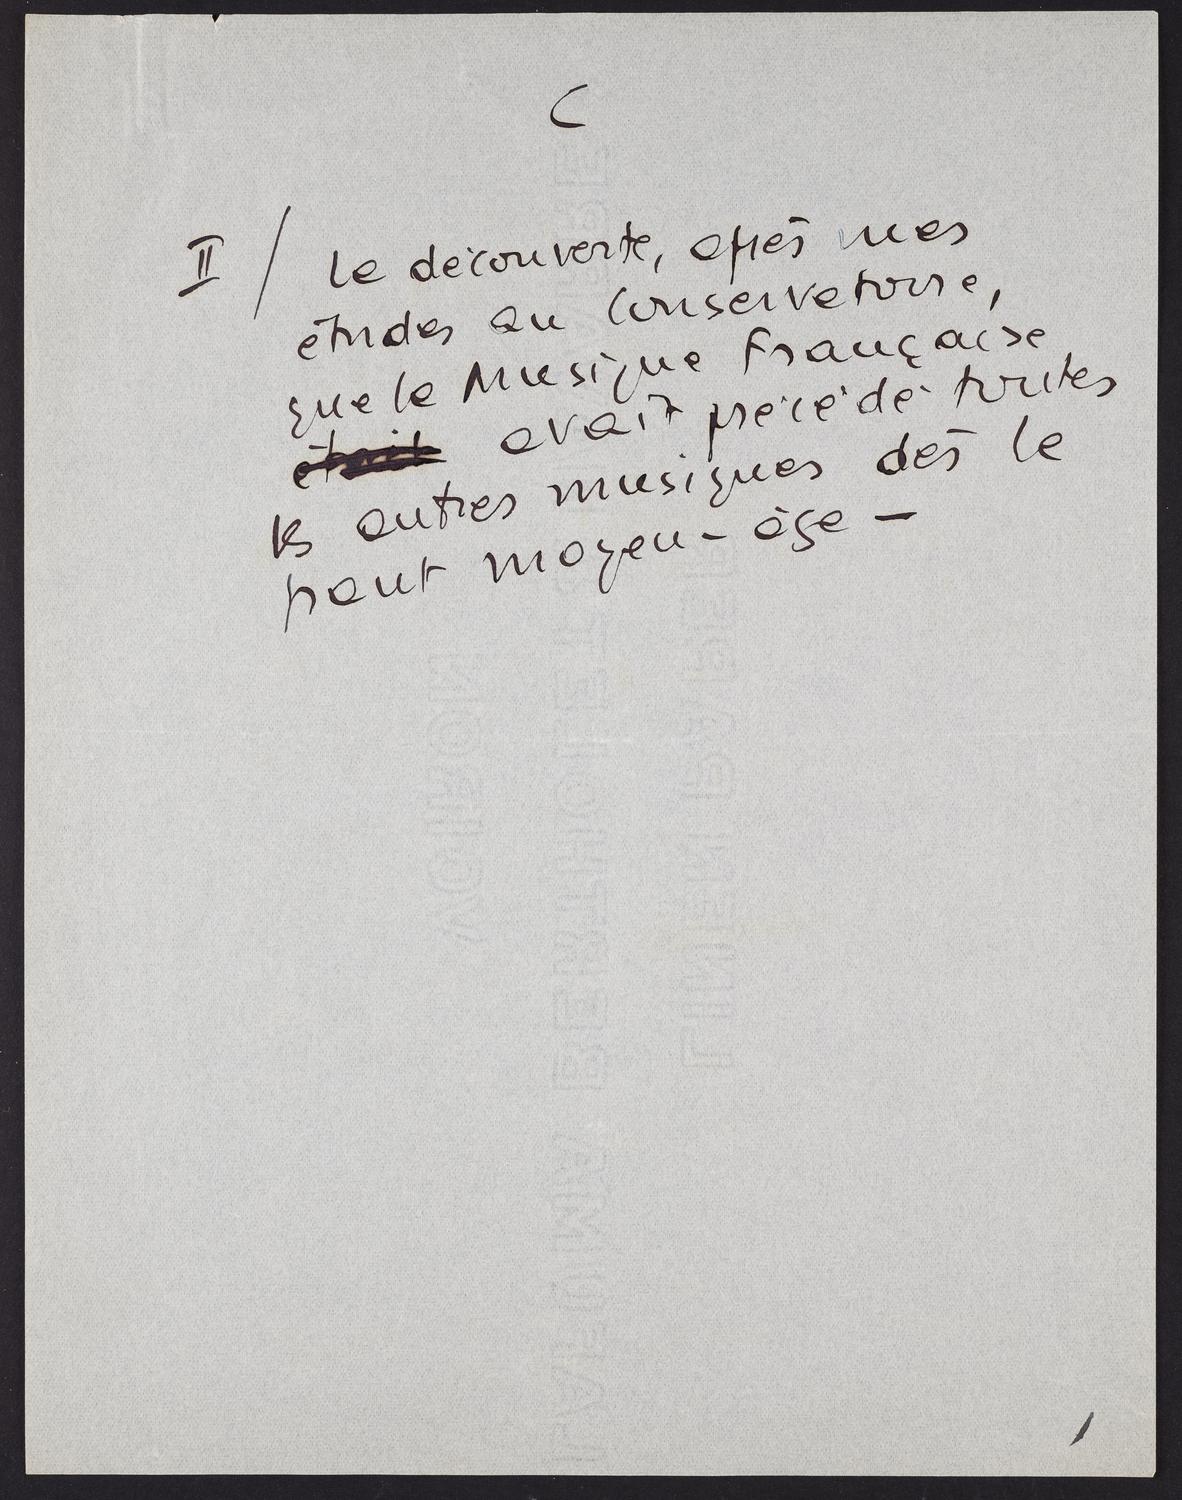 C
II / la découverte, après mes
études au Conservatoire,
que la Musique Française
était avait précédé toutes
les autres musiques dès le
haut moyen-âge -
VOIRON
LAFUMA
LINEN PAPER